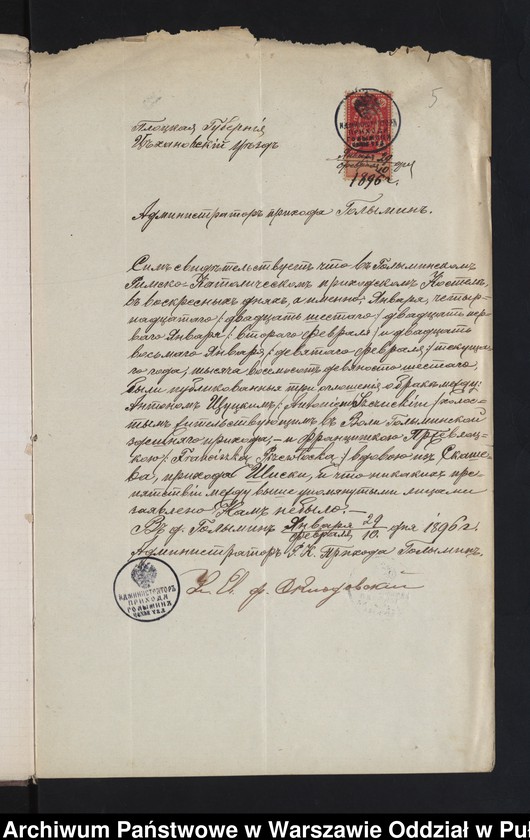 5
Плоцкая Губернія
Цѣхановскій уѣздъ
АДМИНИСТРАТОРЪ
ПРИХОДА
ГОЛЫМИНЪ
Января 29
Февраля 10 дня
1896 г.
Администраторъ прихода Голыминъ.
Симъ свидѣтельствуетъ что въ Голыминскомъ
Римско-Католическомъ приходскомъ Костелѣ,
въ воскресныхъ дняхъ, а именно: Января, четыр-
надцатаго /: двадцать шестаго :/ двадцать пер-
ваго Января /: втораго Февраля :/ и двадцать
восьмаго Января /: девятаго Февраля :/ текуща-
го года, тысяча восемсотъ девяносто шестаго,
были публикованныя три оглашенія о бракѣ между:
Антономъ Щуцкимъ /: Antonim Szczuckim :/ холос-
тымъ жительствующимъ въ Воли Голыминской
здѣшняго прихода, – и Францишкою Пршевлоц-
кою /: Franciszka Przewłocka :/ вдовою изъ
прихода и что никакихъ пре-
пятствій между выше упомянутыми лицами
заявлено Намъ небыло. –
Въ д. Голыминъ Января 29 / Февраля 10 дня 1896 г.
Администраторъ Р. К. прихода Голыминъ.
АДМИНИСТРАТОРЪ
ПРИХОДА
ГОЛЫМИНЪ
Archiwum Państwowe w Warszawie Oddział w Puł